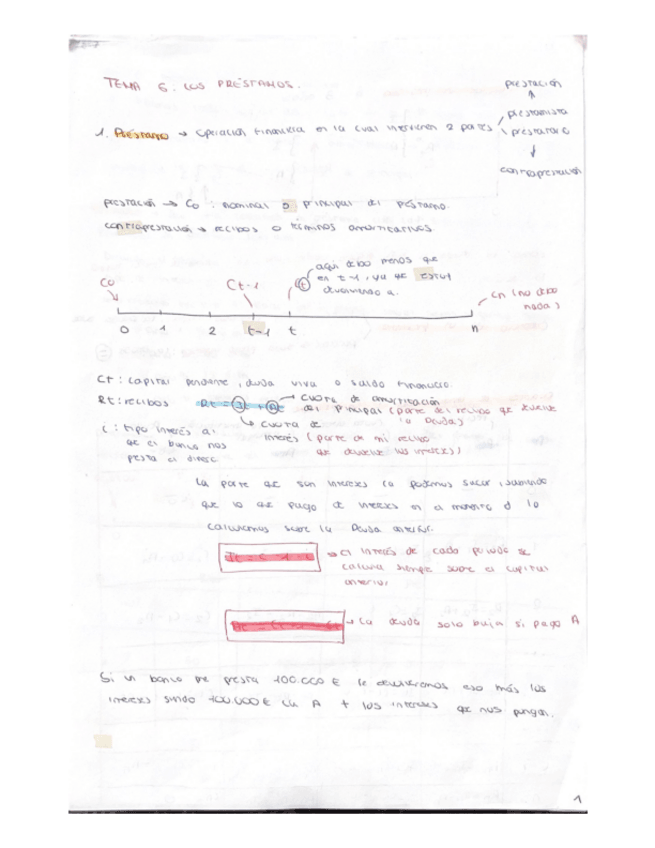 TEMA 6. LOS PRÉSTAMOS.
prestación
prestamista
1. Préstamo → Operación financiera en la cual intervienen 2 partes
prestatario
contraprestación
prestación → Co : nominal o principal del préstamo.
contraprestación → recibos o términos amortizativos
aquí debo menos que
en t-1, ya que estoy
devolviendo a.
Co
Ct-1
t
Cn (no debo
nada)
0 1 2 t-1 t n
Ct : capital pendiente, deuda viva o saldo financiero.
Rt: recibos Rt = It + At
cuota de amortización
del principal (parte del recibo que devuelve
la deuda)
cuota de
interés (parte de mi recibo
que devuelve los intereses)
i : tipo interés al
que el banco nos
presta el dinero
La parte que son intereses la podemos sacar, sabiendo
que lo que pago de intereses en el momento lo
calculamos sobre la Deuda anterior.
→ el interés de cada periodo se
calcula siempre sobre el capital
anterior
→ La deuda solo baja si pago A
Si un banco me presta 100.000 € le devolveremos eso más los
intereses siendo 100.000 € la A + los intereses que nos pongan.
1